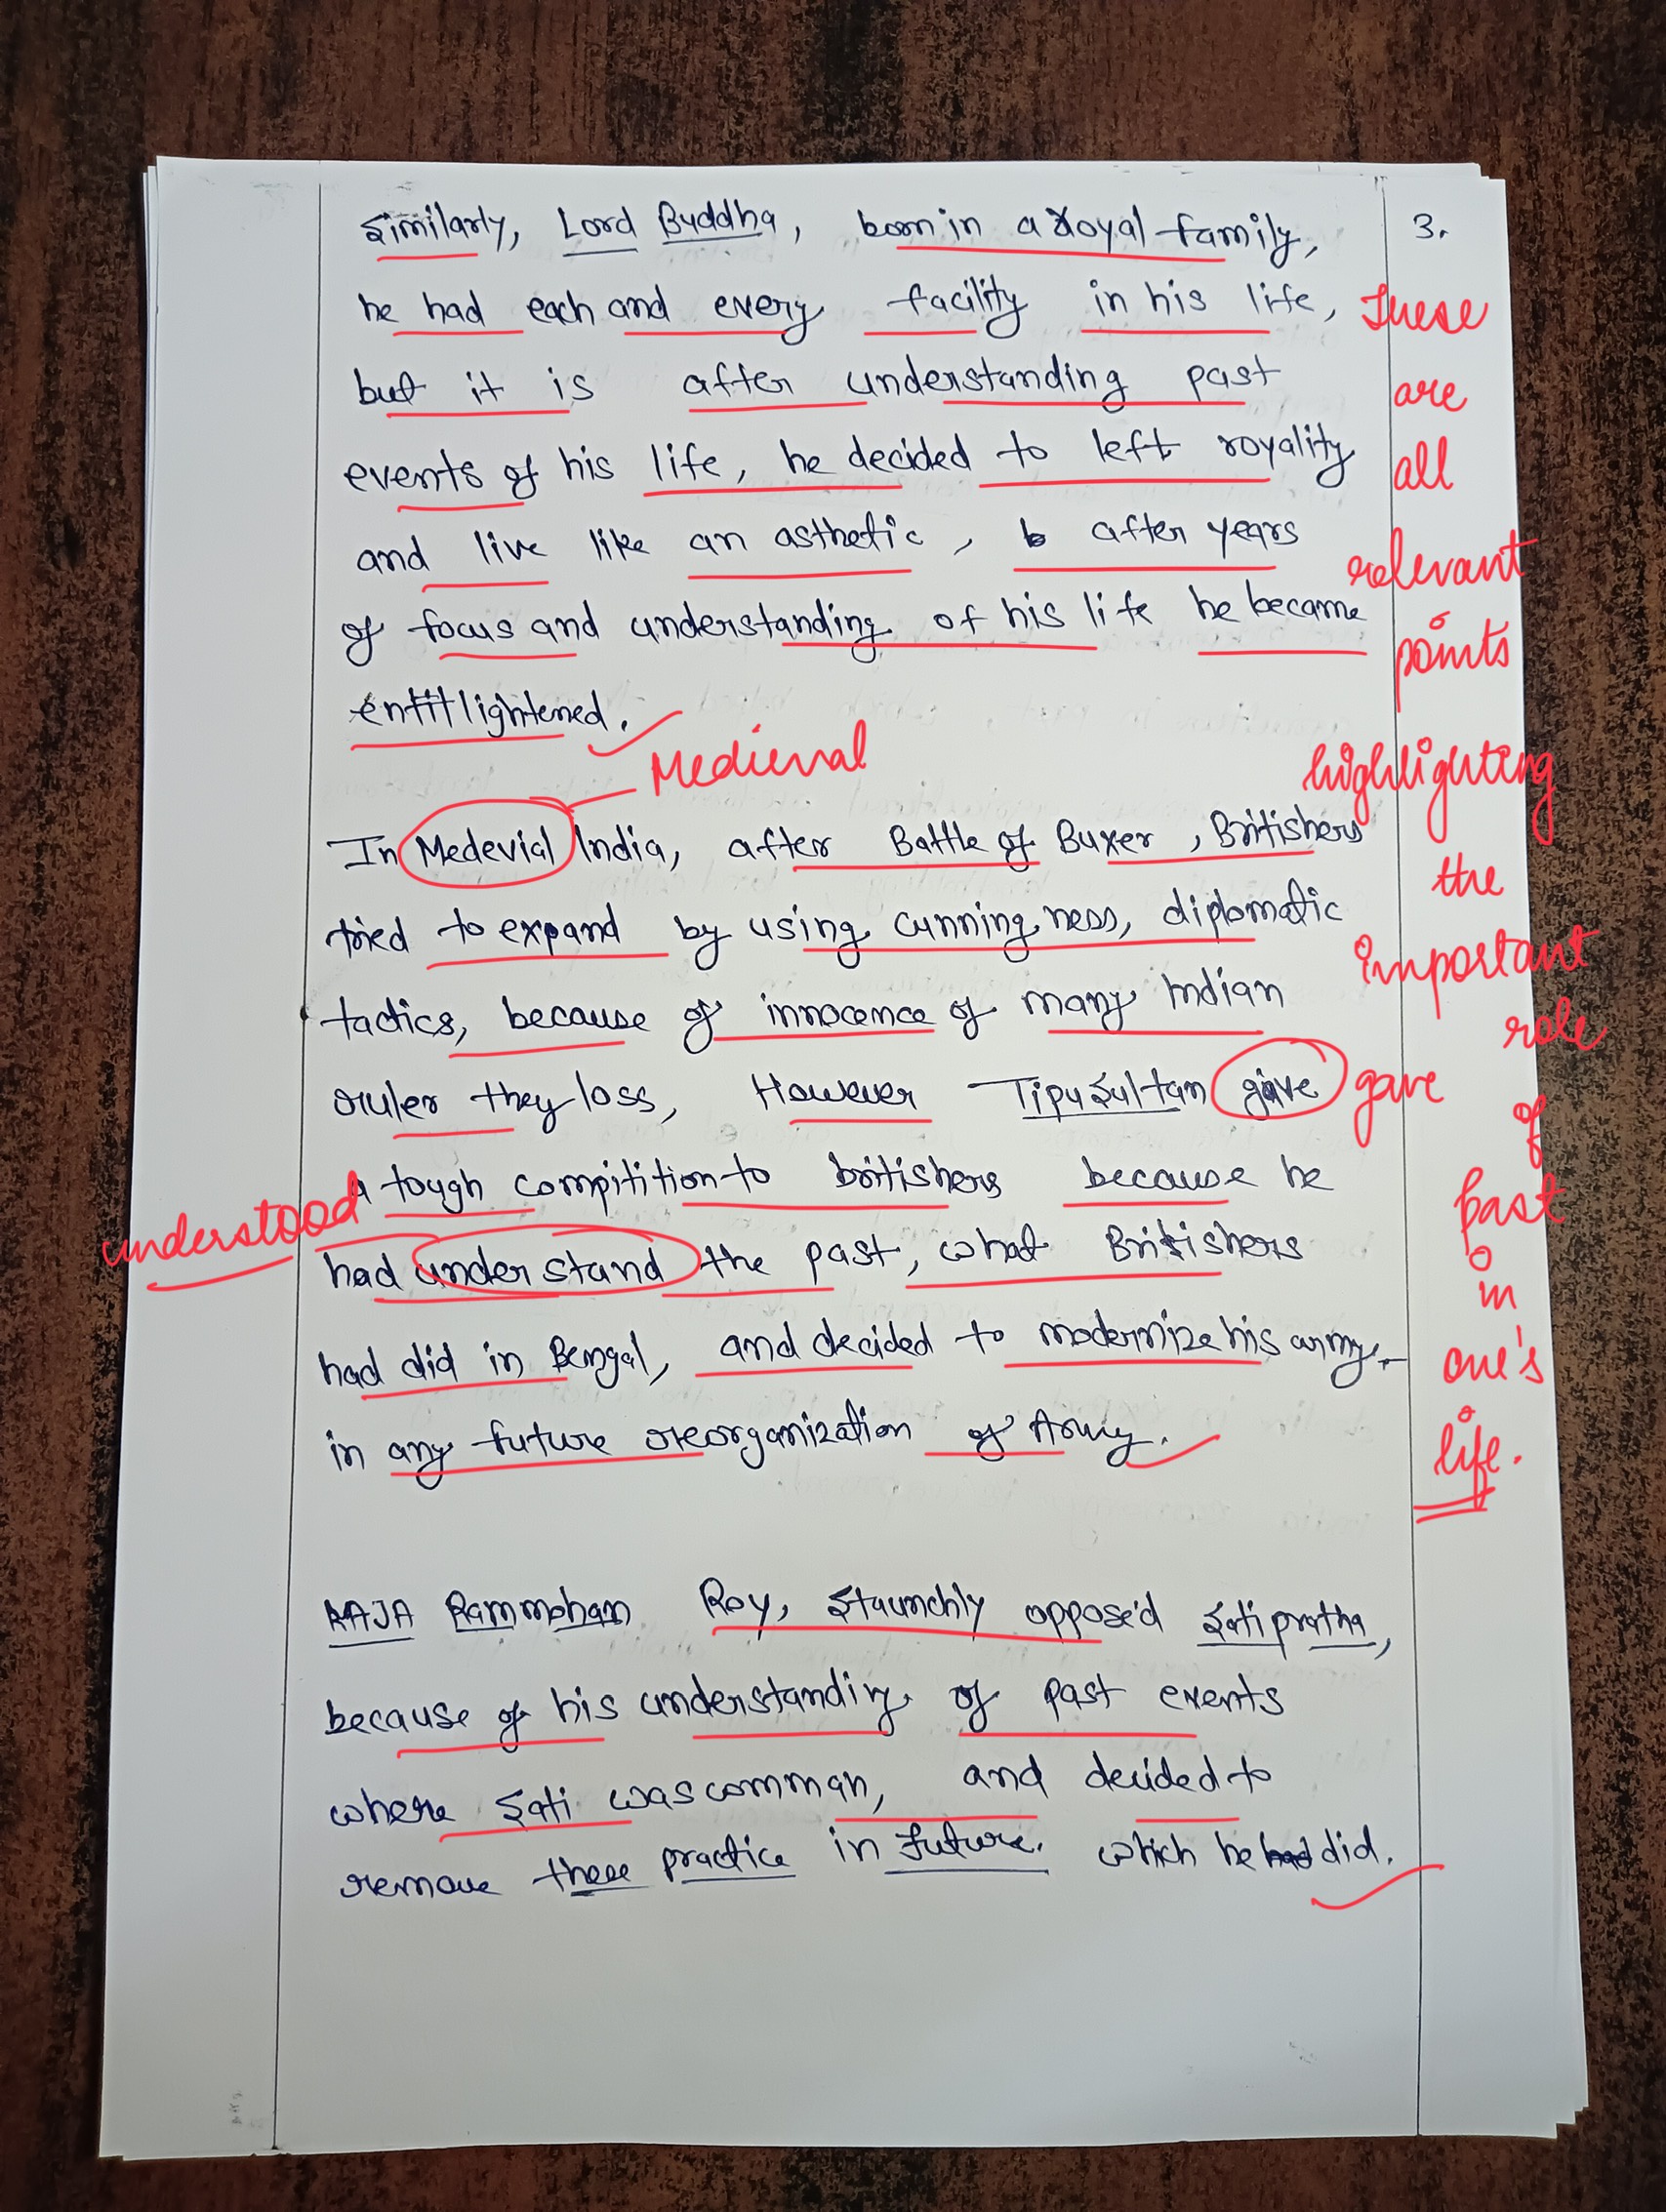 3.
Similarly, Lord Buddha, born in a royal family,
he had each and every facility in his life,
but it is after understanding past
events of his life, he decided to left royality
and live like an asthetic, after years
of focus and understanding of his life he became
lightened.
Medieval
In Medevial India, after Battle of Buxer, Britishers
tried to expand by using cunningness, diplomatic
tactics, because of innocence of many Indian
ruler they loss, However Tipu Sultan give
gave
a tough compitition to britishers because he
understood
had understand the past, what Britishers
had did in Bengal, and decided to modernize his army,
in any future reorganization of Army.
RAJA Rammohan Roy, staunchly opposed sati pratha,
because of his understanding of past events
where sati was comman, and decided to
remove these practice in future. which he had did.
These
are
all
relevant
points
highlighting
the
important
role
of
past
in
one's
life.